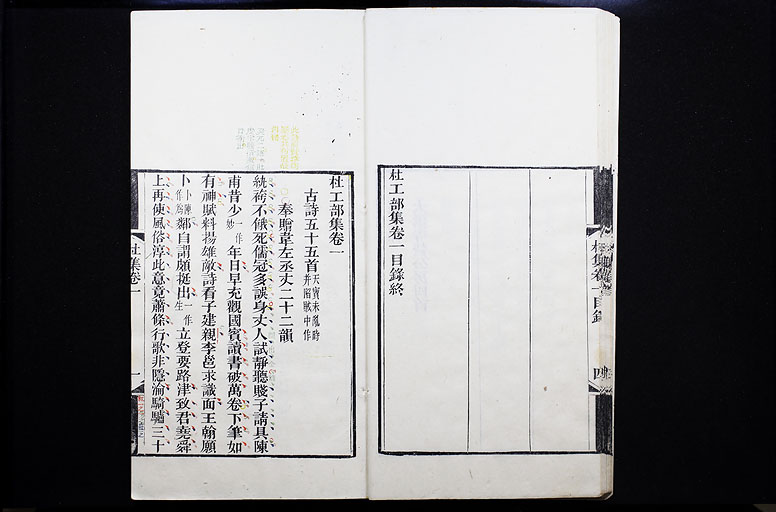 杜工部集卷一目錄終
杜集卷一目錄
四
杜工部集卷一
古詩五十五首天寶未亂時并陷賊中作
奉贈韋左丞丈二十二韻
紈袴不餓死儒冠多誤身丈人試靜聽賤子請具陳
甫昔少一作妙年日早充觀國賓讀書破萬卷下筆如
有神賦料揚雄敵詩看子建親李邕求識面王翰願
卜卜陳作爲鄰自謂頗挺出一作生立登要路津致君堯舜
上再使風俗淳此意竟蕭條行歌非隱淪騎驢三十
杜集卷一
一